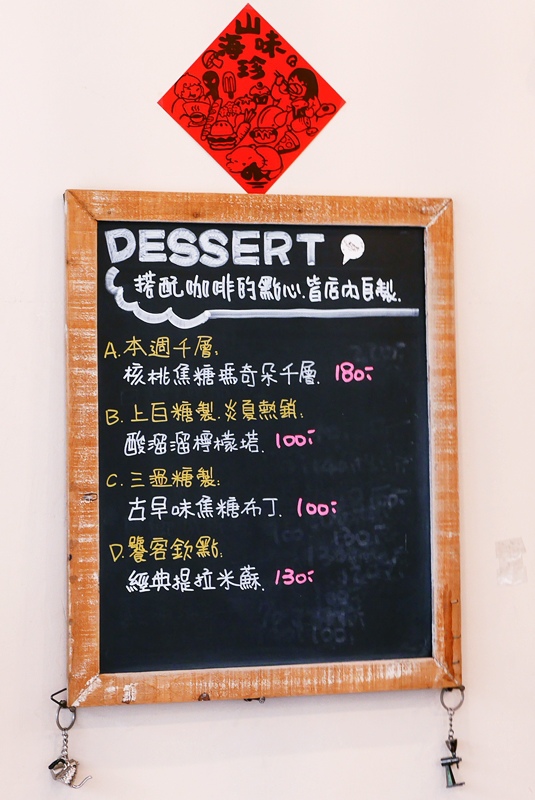 山
海味
珍
DESSERT
搭配咖啡的點心.皆店內自製.
A.本週千層:
核桃焦糖瑪奇朵千層. 180:-
B.上白糖製.炎夏熱銷:
酸溜溜檸檬塔. 100:-
C.三溫糖製:
古早味焦糖布丁. 100:-
D.饕客欽點:
經典提拉米蘇. 130:-